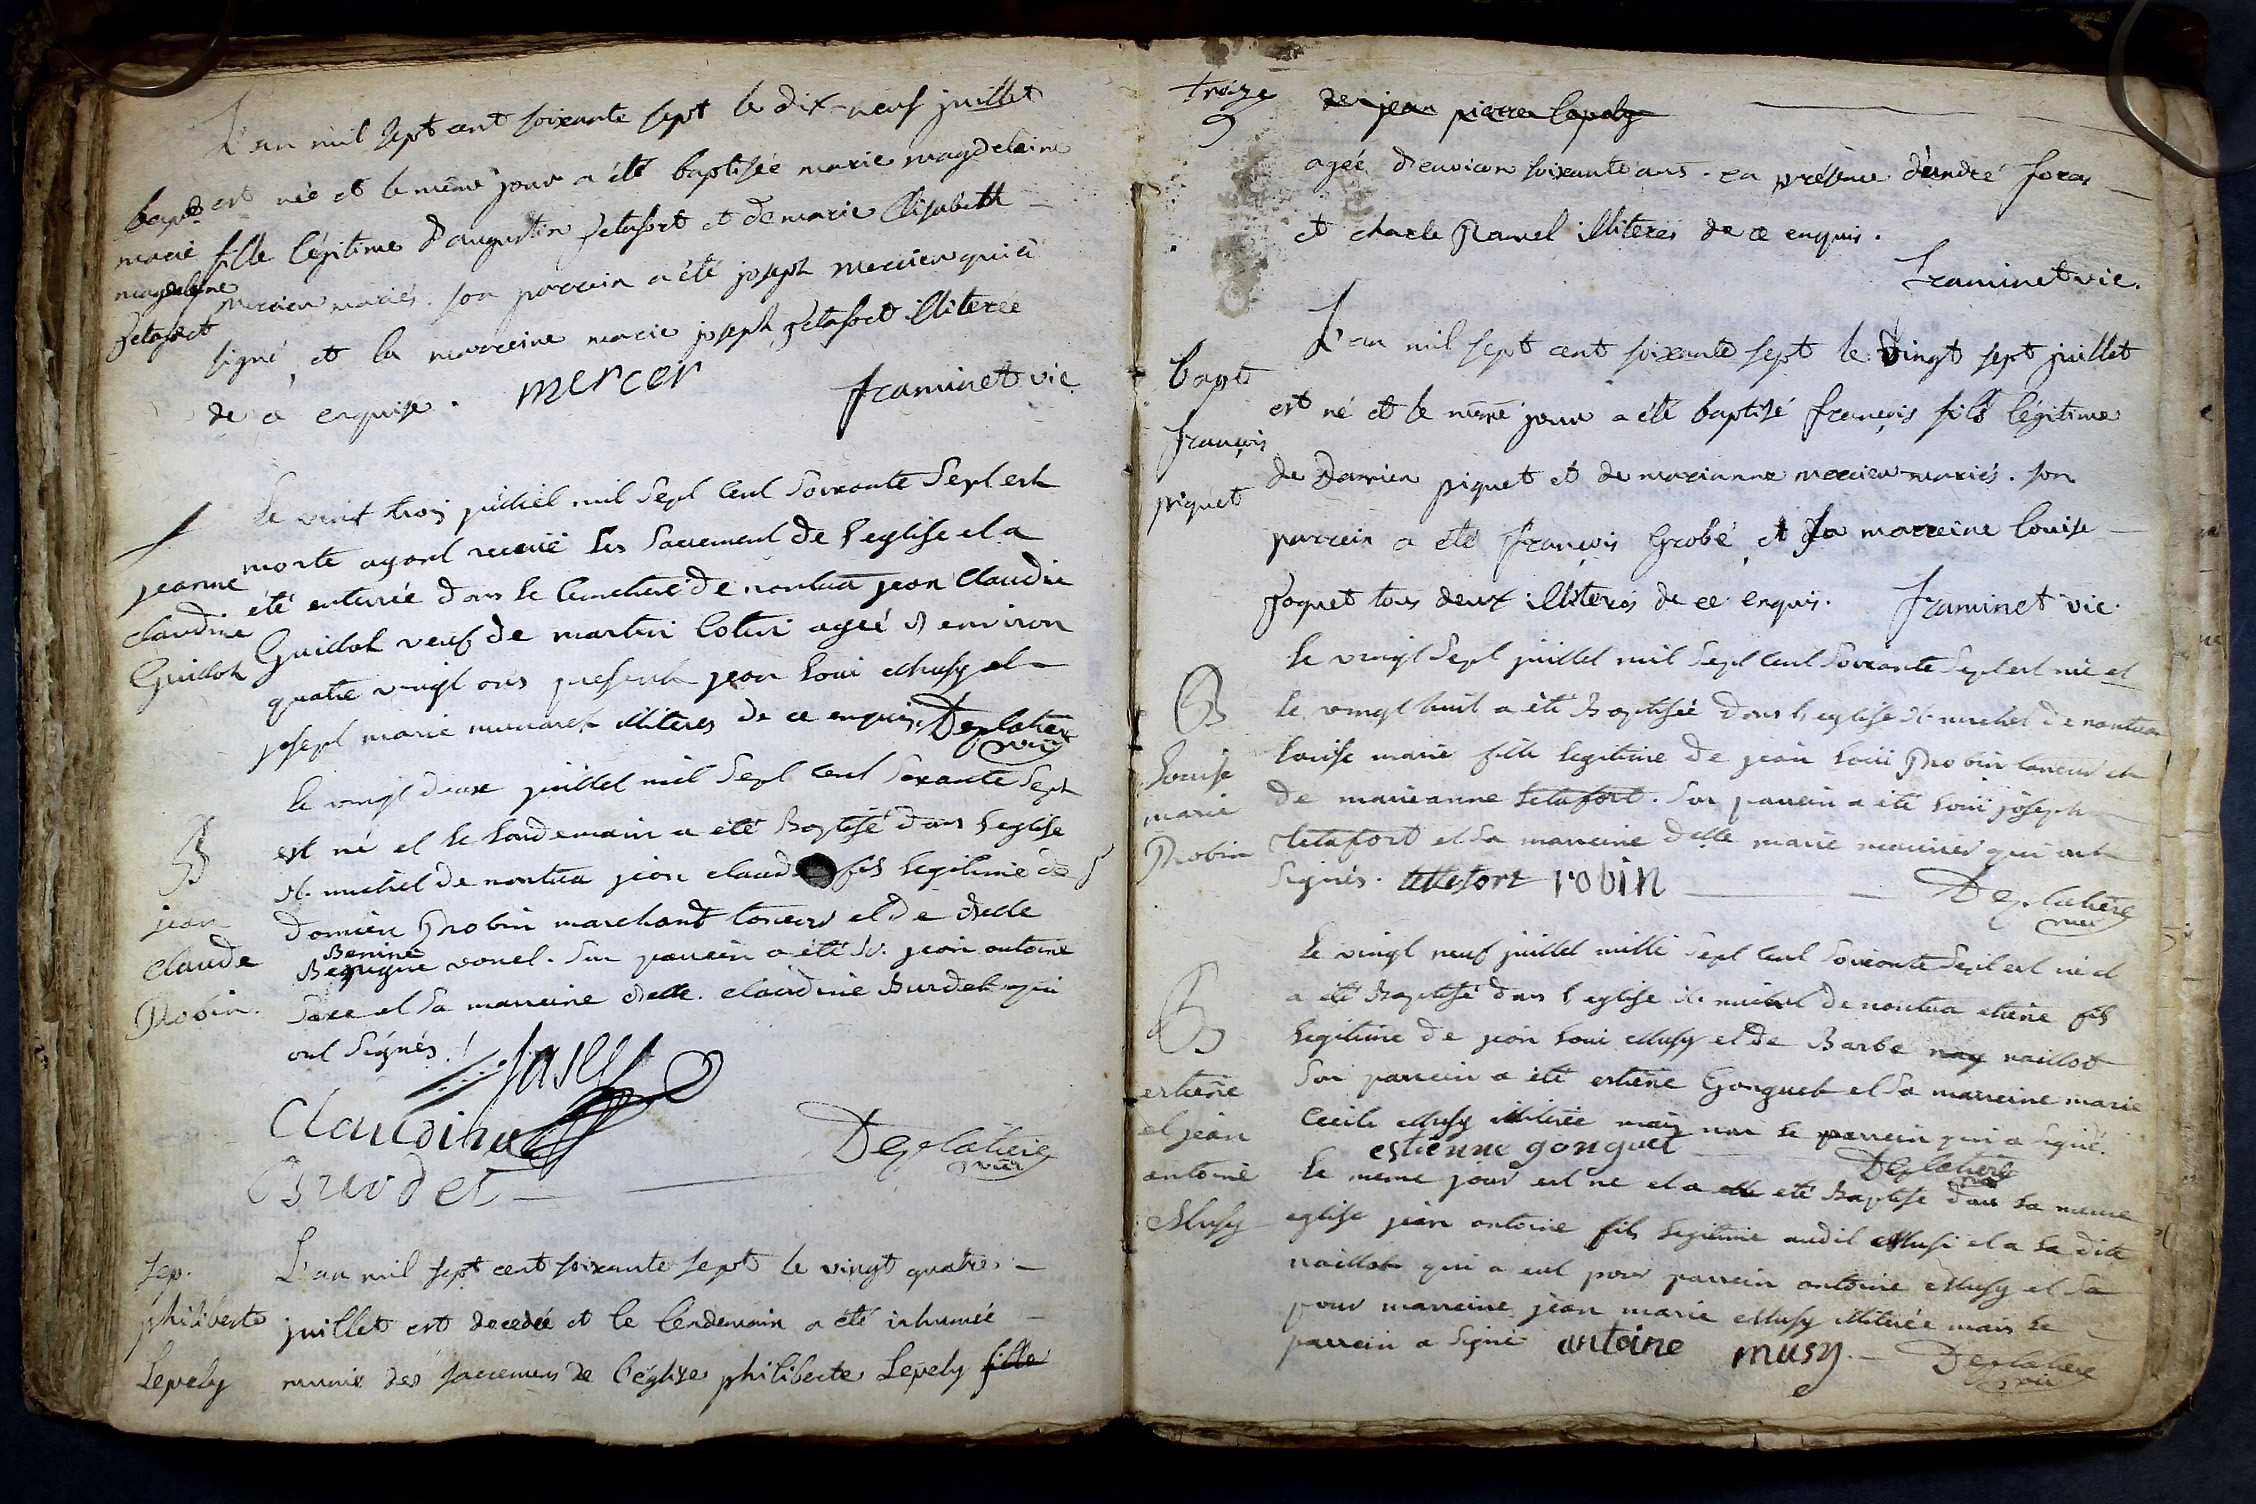 L'an mil sept cent soixante sept le dix-neuf juillet
bapt. est née et le même jour a été baptisée marie magdelaine
marie fille légitime d'augustin jetafort et de marie Elisabeth
magdelaine mercier mariés. son parrein a été joseph mercier qui a
jetafort
signé, et la marreine marie joseph jetafort illiterée
de ce enquise. mercer framinet vic.
Le vint trois juilliel mil Sept Cent Soixante Sept est
morte ayant receüe les Sacrement de l'eglise et a
jeanne
été enterrée dans le Cimetiere de nantua jean Claudie
claudine
Guillot veuf de martin Cotin ageé d'environ
Guillot
quatre vingt ans present jean Loui Musy et
joseph marie illiteres de ce enquis. Deplatiere
vic
le vingt deux juillet mil Sept Cent Soixante Sept
B
est né et le landemain a été Baptisé dans l'eglise
St. michel de nantua jean claude fils legitime de
jean
damien Robin marchant taneur et de delle
claude
Benine
Benigne vonel. Son parrein a été Sr. jean antoine
Robin.
Jase et Sa marreine delle. claudine Burdet qui
ont Signés.
Jasey
Claudine
Burdet
Deplatiere
vic
Sep.
L'an mil sept cent soixante sept le vingt quatre
philiberte
juillet est decedée et le lendemain a été inhumée
Lepely
munie des sacremens de l'église philiberte Lepely fille
treize
de jean pierre Lepely
ageé d'environ soixante ans. en présence d'andré foras
et charle Ravel illiterés de ce enquis.
framinet vic.
L'an mil sept cent soixante sept le vingt sept juillet
bapt
est né et le même jour a été baptisé françois fils légitime
françois
de Damien piquet et de marianne mercier mariés. son
piquet
parrein a été françois Grobé, et sa marreine louise
Jaquet tous deux illiterés de ce enquis. framinet vic.
le vingt Sept juillet mil Sept Cent Soixante Sept est nie et
B
le vingt huit a été Baptisée dans l'eglise St. michel de nantua
Louise
louise marie fille legitime de jean Loui Robin taneur et
marie
de marieanne Letafort. Son parrein a été Loui joseph
Robin
Letafort et Sa marreine delle marie mercier qui ont
Signés. Lettefort robin Deplatiere
vic
le vingt neuf juillet mille Sept Cent Soixante Sept est né et
B
a été Baptisé dans l'eglise St. michel de nantua etiene fils
legitime de jean Loui Musy et de Barbe nay naillot
estiene
Son parrein a été estiene Gonguet et Sa marreine marie
et jean
Cecile Musy illitrée mais non le parrein qui a Signé.
estienne gonguet Deplatiere
vic
antoine
le meme jour est ne et a été Baptise dans la meme
Musy
eglise jean antoine fils legitime audit Musi et a la dite
naillot qui a eut pour parrein antoine Musy et Sa
pour marreine jean marie Musy illitrée mais le
parrein a Signé antoine musy. Deplatiere
vic